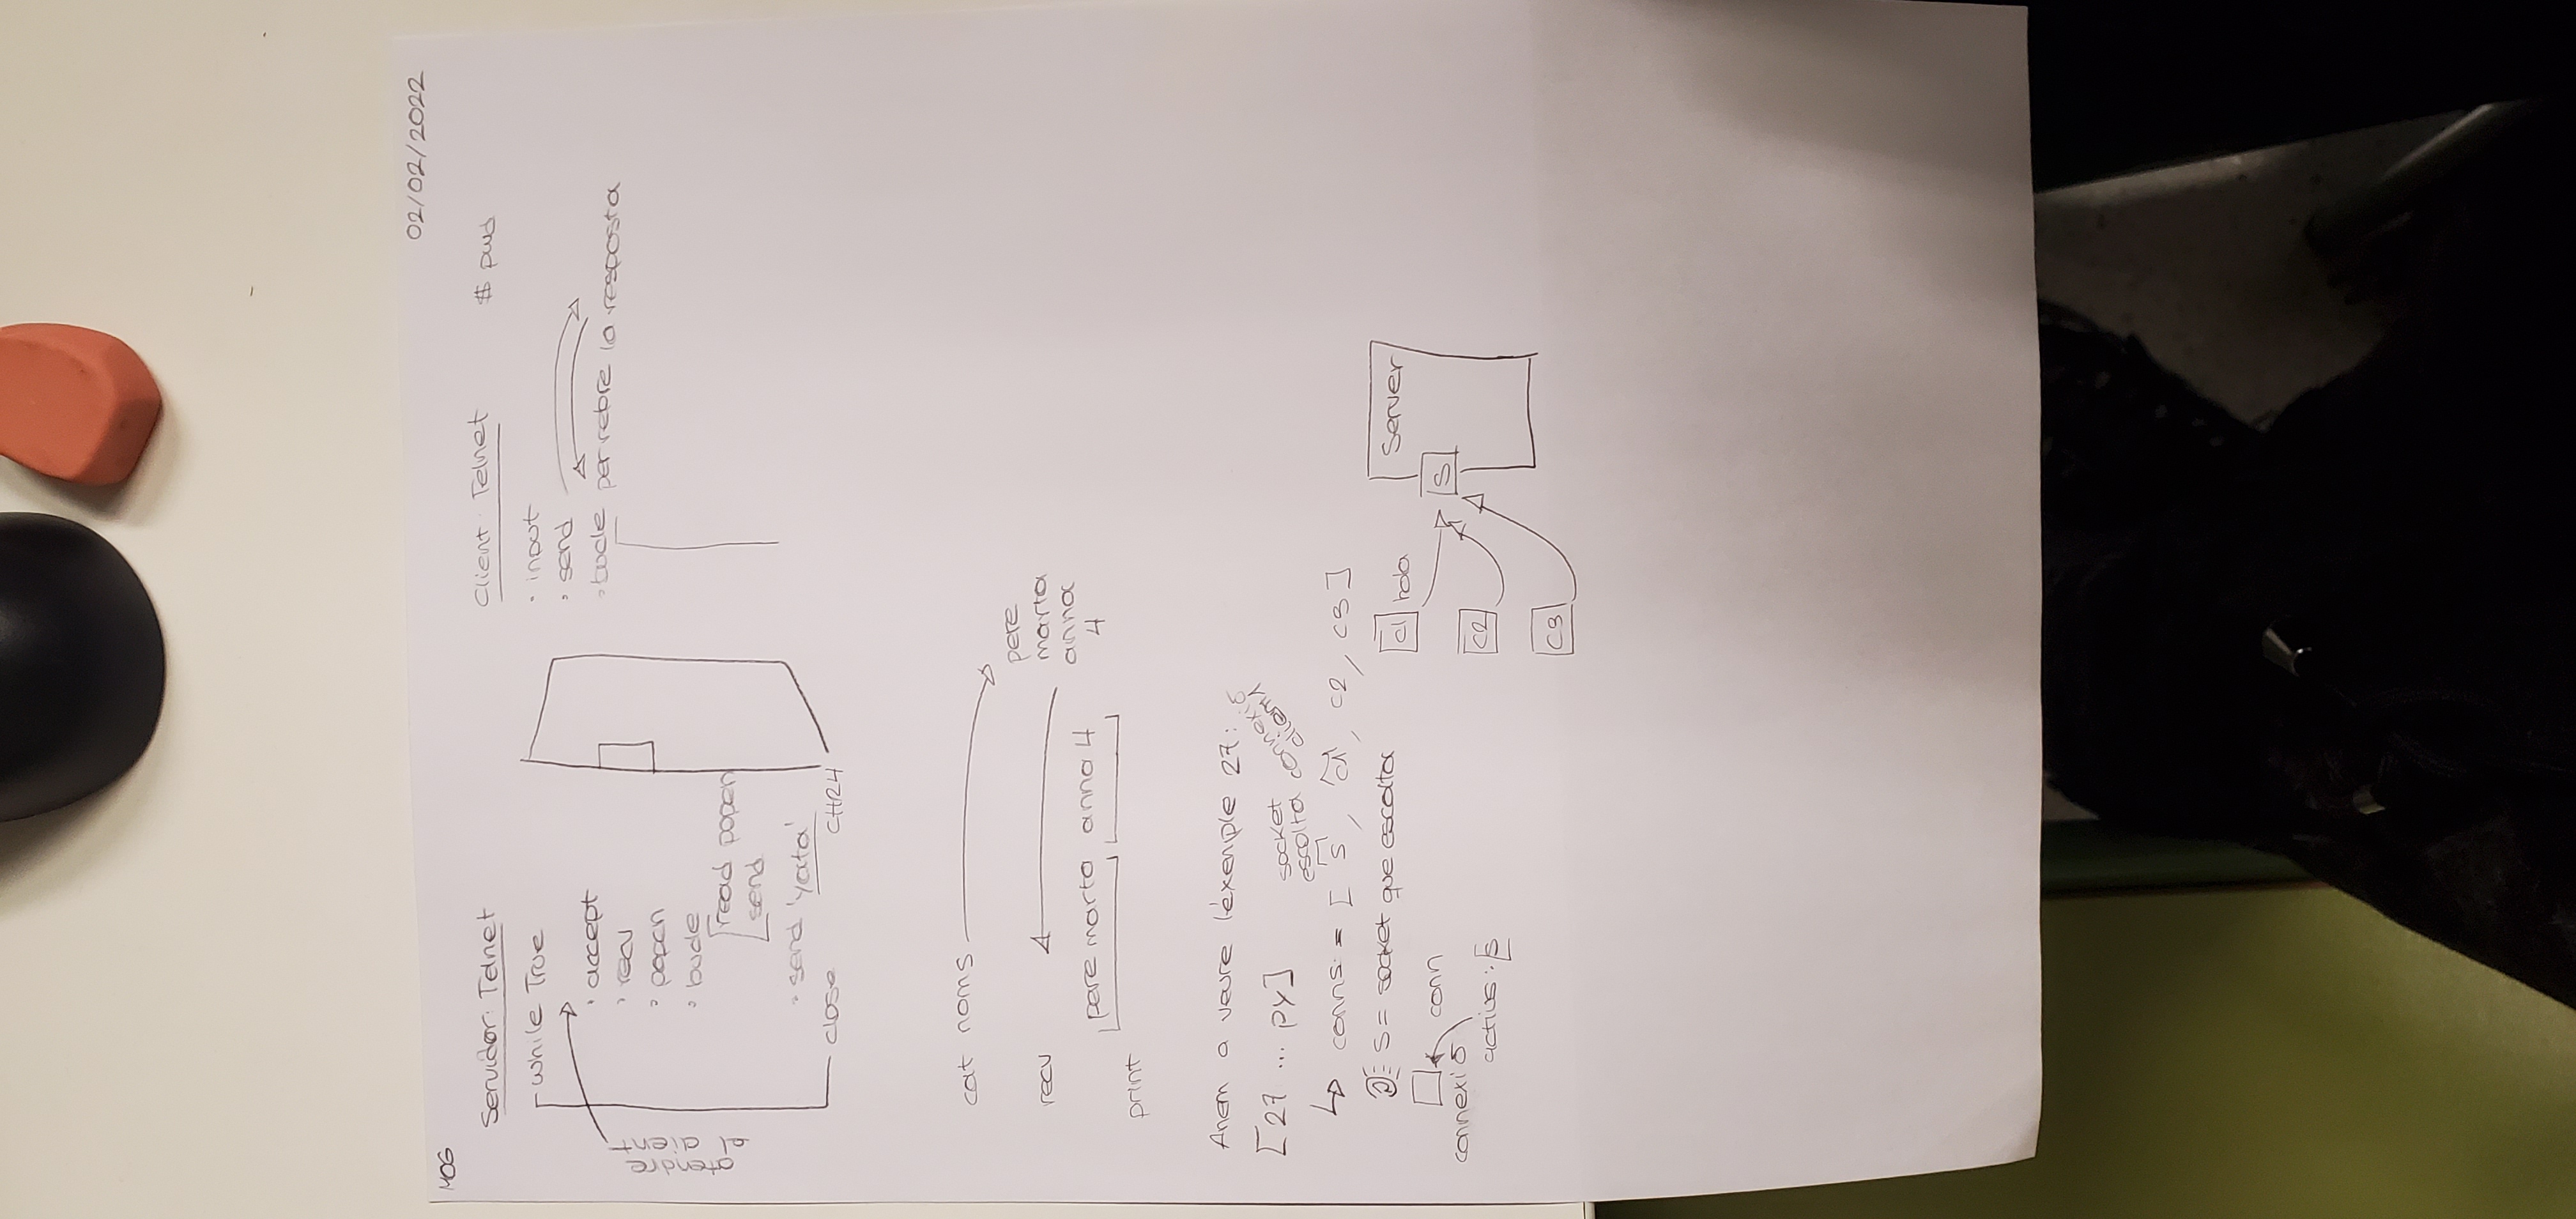 M06
02/02/2022
Servidor Telnet
while True
atendre
al client
· accept
· recv
· popen
· bucle
read popen
send
· send 'yata'
close
CHR4
Client Telnet
$ pwd
· input
· send
· bucle per rebre la resposta
cat noms
pere
marta
anna
4
recv
pere marta anna 4
print
Anem a veure l'exemple 27:
[27 ... py]
socket
escolta
connexió
client
conns = [ s, c1, c2, c3 ]
S = socket que escolta
conn
connexió
actius: s
c1 hola
c2
c3
Server
S